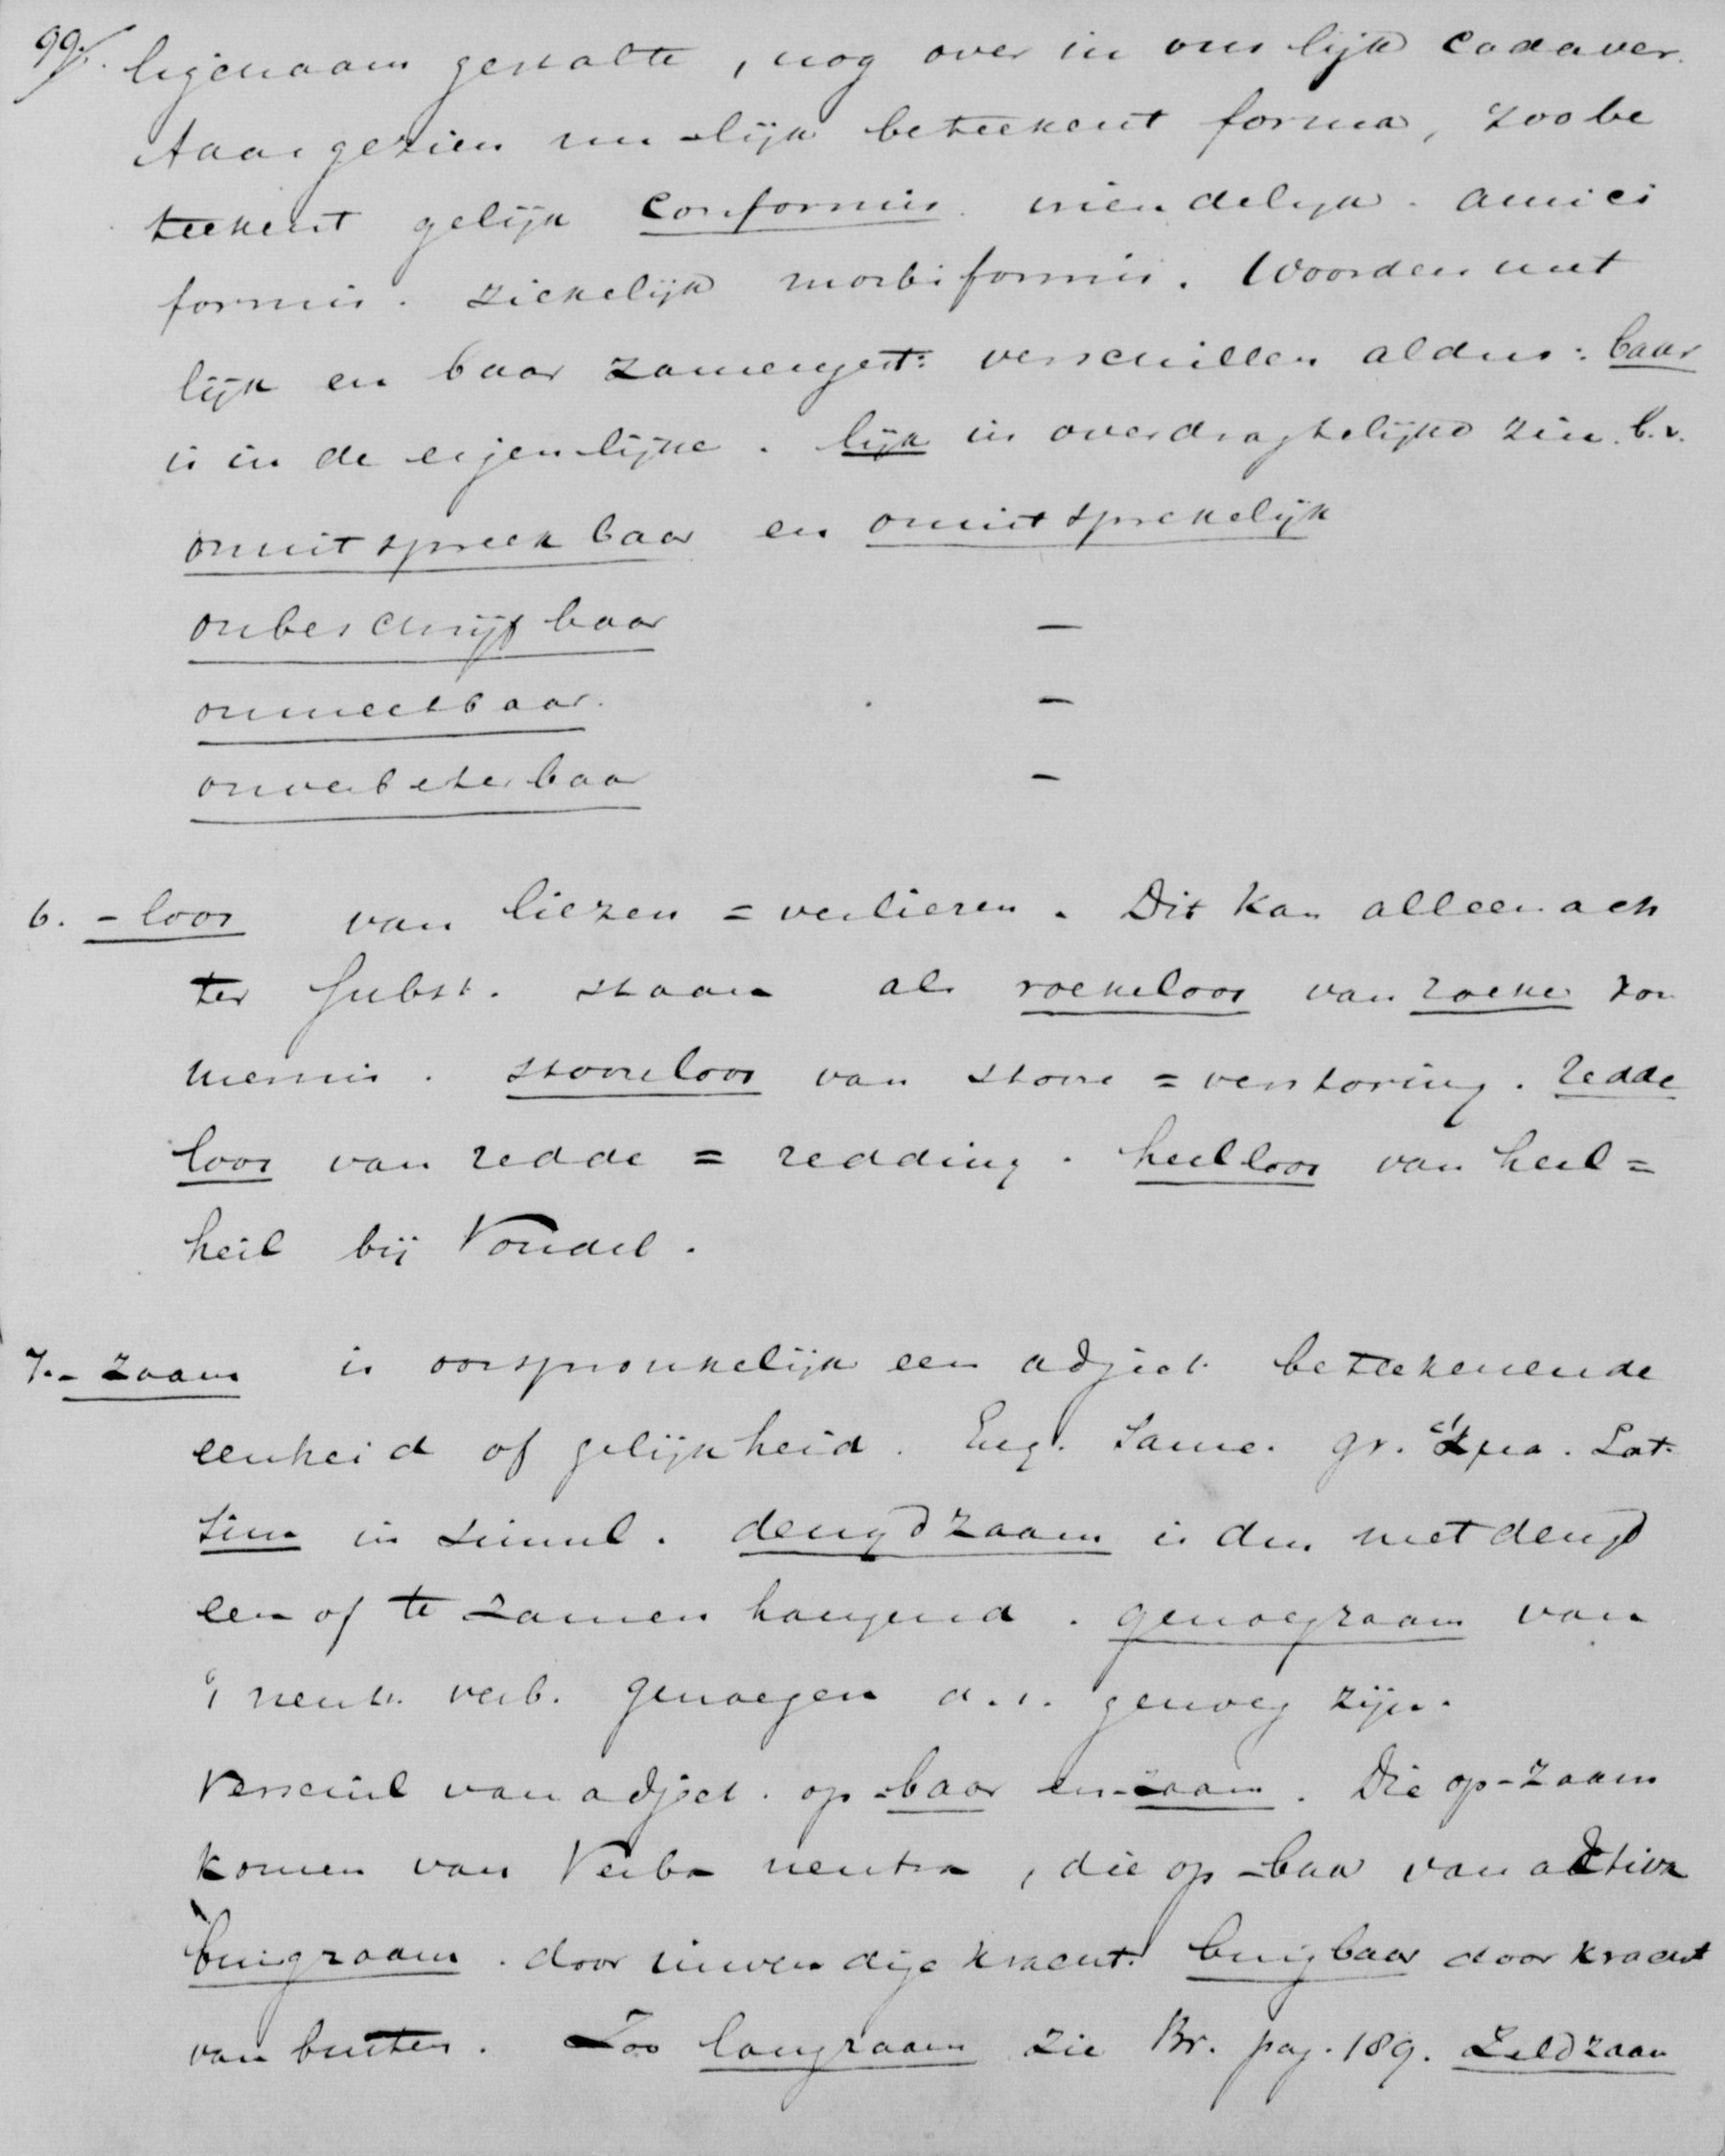 99/. ligchaam gestalte, nog over in ons lijk cadaver.
Aangezien nu -lijk beteekent forma, zoo be
teekent gelijk conformis. vriendelijk. amici
formis. ziekelijk morbiformis. Woorden met
lijk en baar zamengest: verschillen aldus: baar
is in de eigenlijke. lijk in overdragtelijke zin. b.v.
onuitspreekbaar en onuitsprekelijk
onbeschrijfbaar —
onmeetbaar. —
onverbeterbaar —
6. -loos van liezen = verliezen. Dit kan alleen ach
ter subst. staan als roekeloos van roeke zor
mernis. stooreloos van stoore = verstoring. redde
loos van redde = redding. heelloos van heel =
heil bij Vondel.
7. -zaam is oorspronkelijk een adject. beteekenende
eenheid of gelijkheid. Eng. Same. gr. ἅμα. Lat.
sim in simul. deugdzaam is dus met deugd
een of te zamen hangend. genoegzaam van
't neutr. verb. genoegen d.i. genoeg zijn.
Verschil van adject. op -baar en -zaam. Die op -zaam
komen van Verba neutra, die op -baar van activa
buigzaam. door inwendige kracht. buigbaar door kracht
van buiten. Zoo langzaam zie Br. pag. 189. Zeldzaam